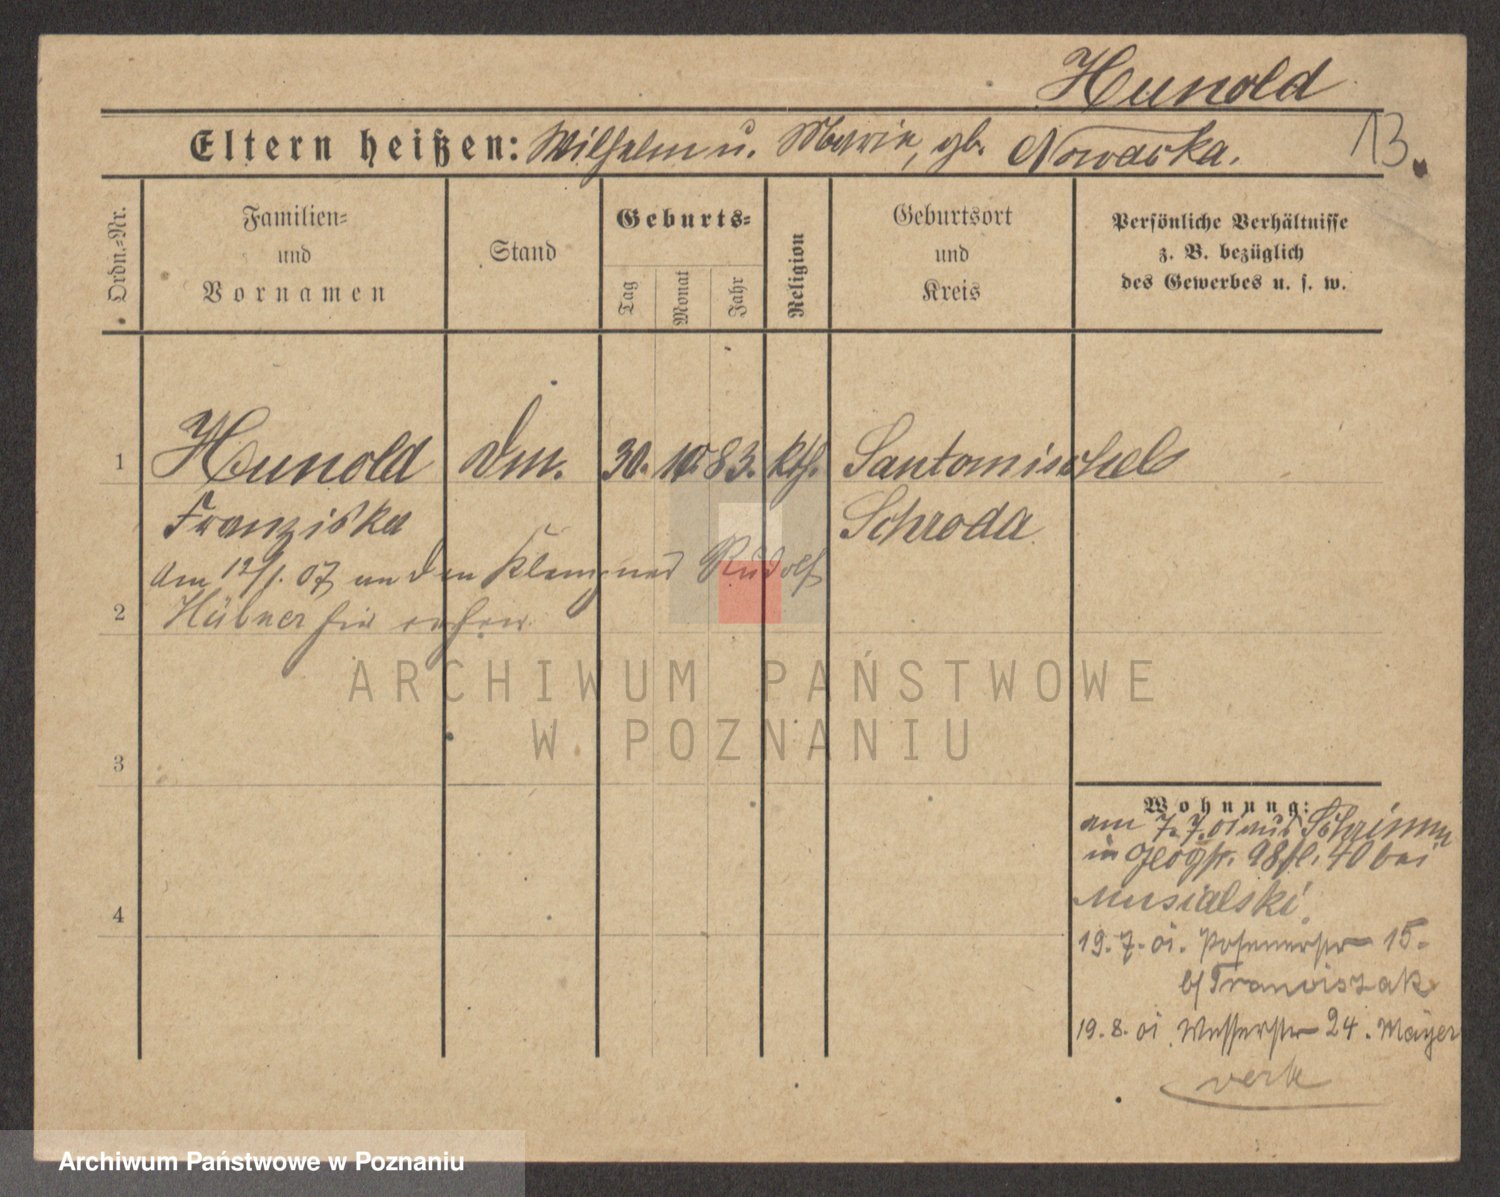 Hunold
Eltern heißen: Wilhelm u. Marie, gb. Nowacka.
13.
Ordn.-Nr.
Familien-
und
Vornamen
Stand
Geburts-
Tag
Monat
Jahr
Religion
Geburtsort
und
Kreis
Persönliche Verhältnisse
z. B. bezüglich
des Gewerbes u. s. w.
1 Hunold 30. 10. 83. kth. Santomischel
Franziska Schroda
am 12/1. 07 an den Klempner Rudolf
2 Hübner hier
ARCHIWUM PAŃSTWOWE
W POZNANIU
3
Wohnung:
am 7.7.01 aus Schrimm
in 98 bei
4 Musialski.
19. 7. 01. Posenerstr 15.
b/ Franciszak
19. 8. 01. Wasserstr 24. Mayer
verh
Archiwum Państwowe w Poznaniu